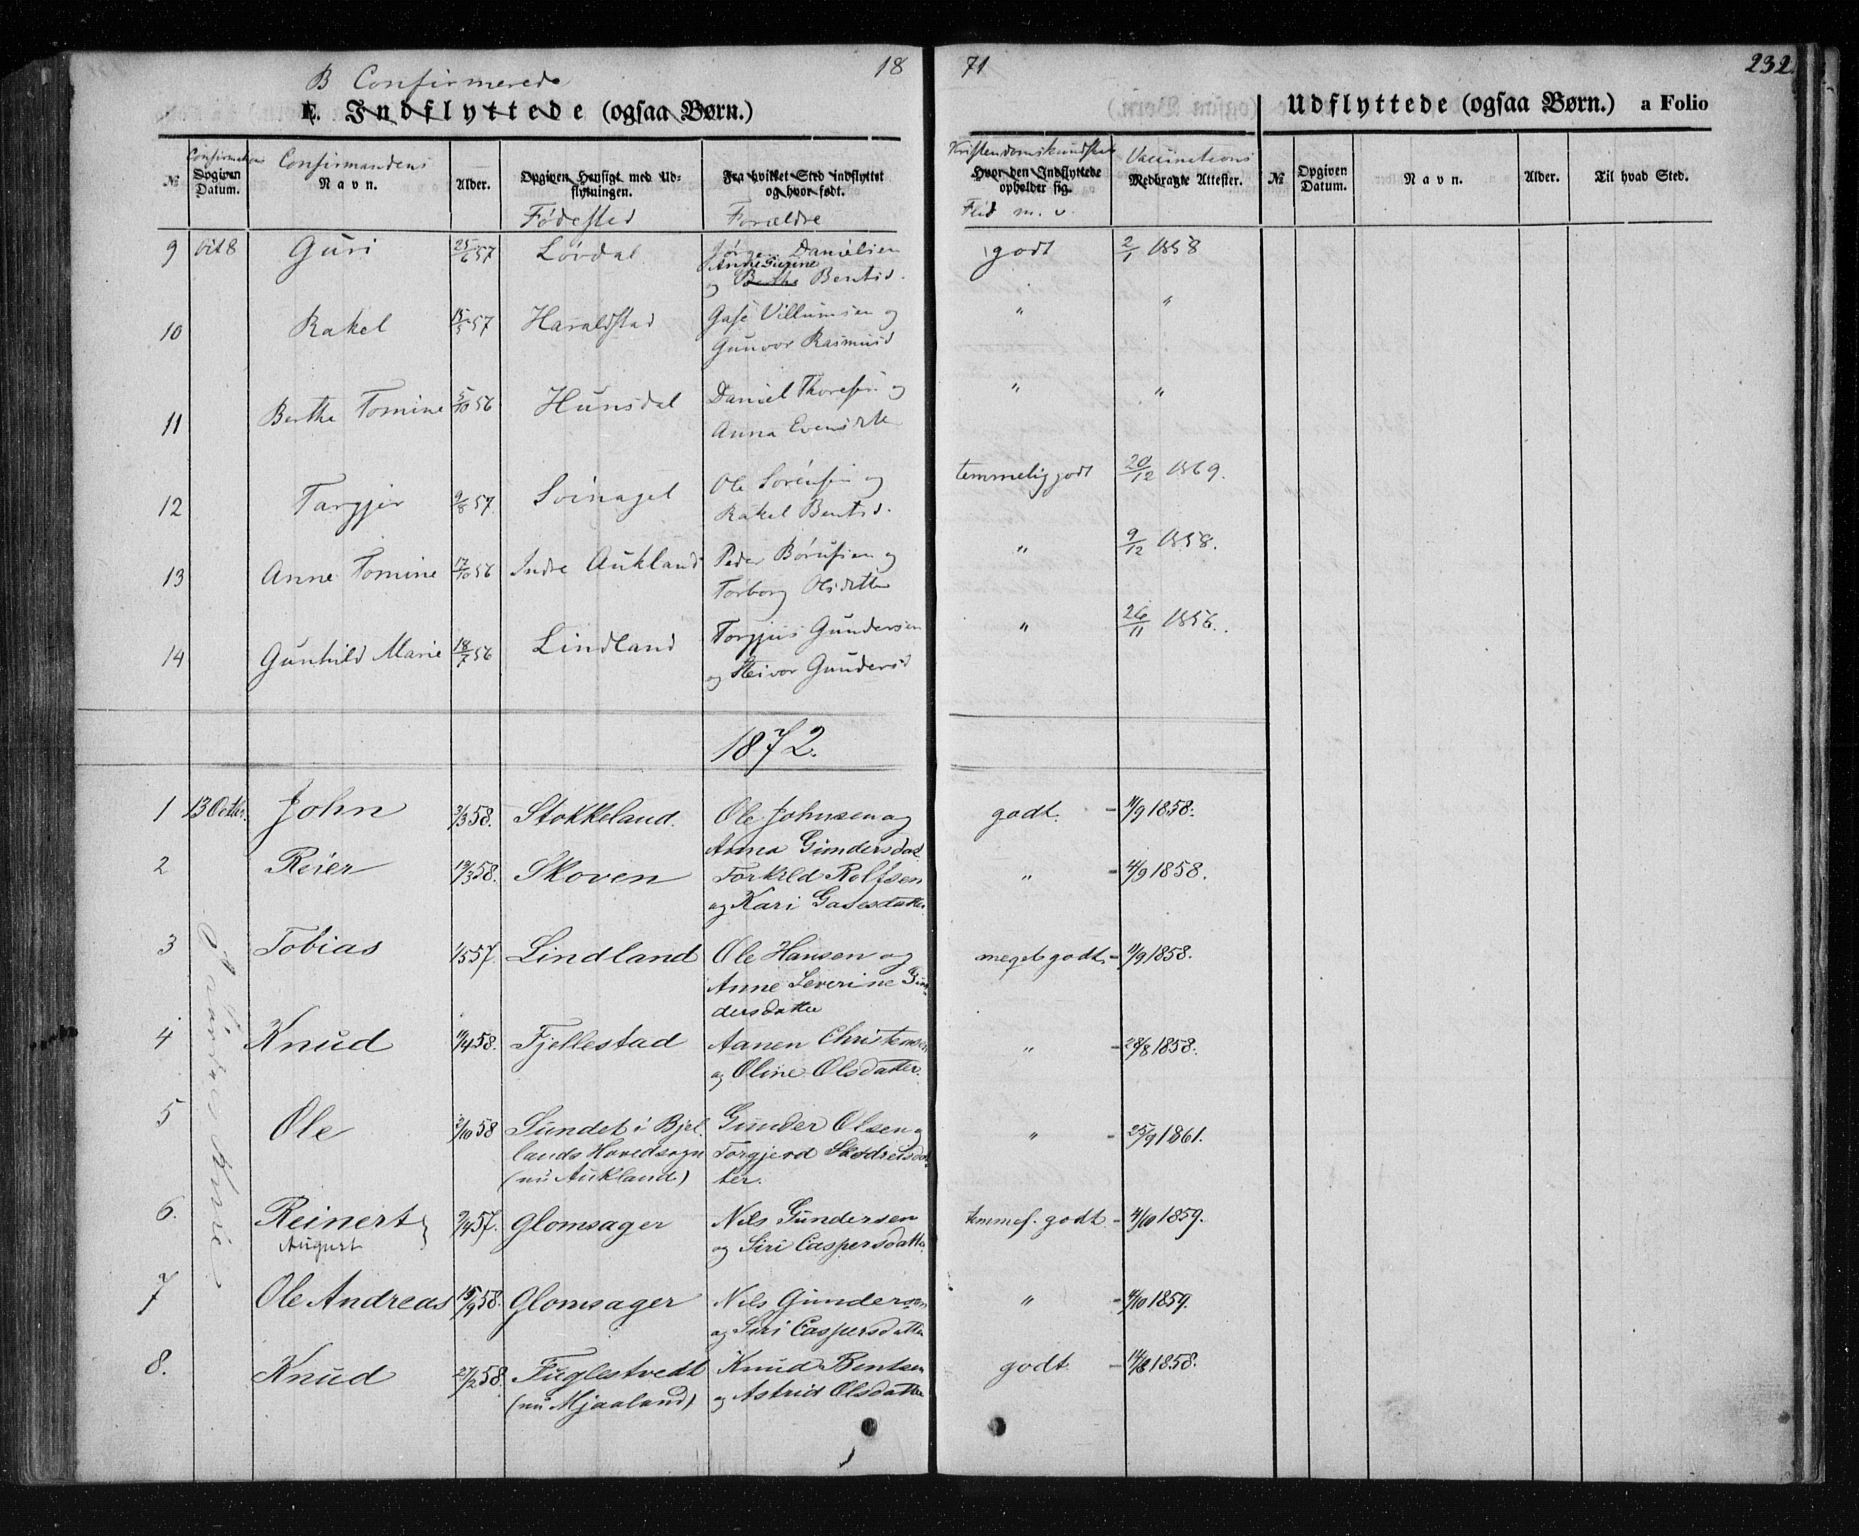 B Confirmerede
18 71
232.
E. Indflyttede (ogsaa Børn.)
Udflyttede (ogsaa Børn.) a Folio
№ Opgiven Datum. Confirmandens Navn. Alder. Opgiven Hensigt med Udflytningen. Fra hvilket Sted indflyttet og hvor født. Hvor den Indflyttede opholder sig. Medbragte Attester. № Opgiven Datum. Navn. Alder. Til hvad Sted.
Fødested Forældre Flid m. v. Vaccinations
9 Guri 25/6 57 Løvdal Jørgen Danielsen godt 2/1 1858
Anne Gurine
og Berthe Bentsd.
10 Rakel 15/5 57 Haraldstad Gase Villumsen og " "
Gunvor Rasmusd
11 Berthe Tomine 5/10 56 Hunsdal Daniel Thoresen og " "
Anna Evensdtr
12 Targjer 9/8 57 Soinagel Ole Sørensen og temmelig godt 20/12 1869.
Rakel Bentsd.
13 Anne Tomine 17/10 56 Indre Aukland Peder Børufsen og " 9/12 1858.
Torborg Olsdatter
14 Gunhild Marie 18/7 56 Lindland Torgjus Gundersen " 26/11 1856.
og Reivor Gundersd
1872.
1 13 Octbr. John 3/3 58. Stokkeland. Ole Johnsen og godt. 11/9 1858.
Anna Gundersdat
2 Reier 19/3 58. Skoven Torkild Rolfsen " 4/9 1858.
og Kari Gasesdatter
3 Tobias 1/5 57. Lindland Ole Hansen og meget godt. 11/9 1858.
Anne Severine Gun-
dersdatter
4 Knud 11/4 58. Fjellestad Aanen Christensen " 28/8 1858.
og Oline Olsdatter.
5 Ole 3/10 58 Sundet i Bjel- Gunder Olsen og " 25/9 1861.
lands Hovedsogn Torgjerd Skødreisdat
(nu Aukland) ter.
6. Reinert 9/4 57. Glomsager Nils Gundersen temmel. godt 4/10 1859.
August og Siri Caspersdatter
7 Ole Andreas 15/9 58. Glomsager Nils Gundersen " 4/10 1859.
og Siri Caspersdatter
8. Knud 27/2 58. Fuglestvedt Knud Bentsen godt 14/8 1858.
(nu Mjaaland) og Astrid Olsdatter